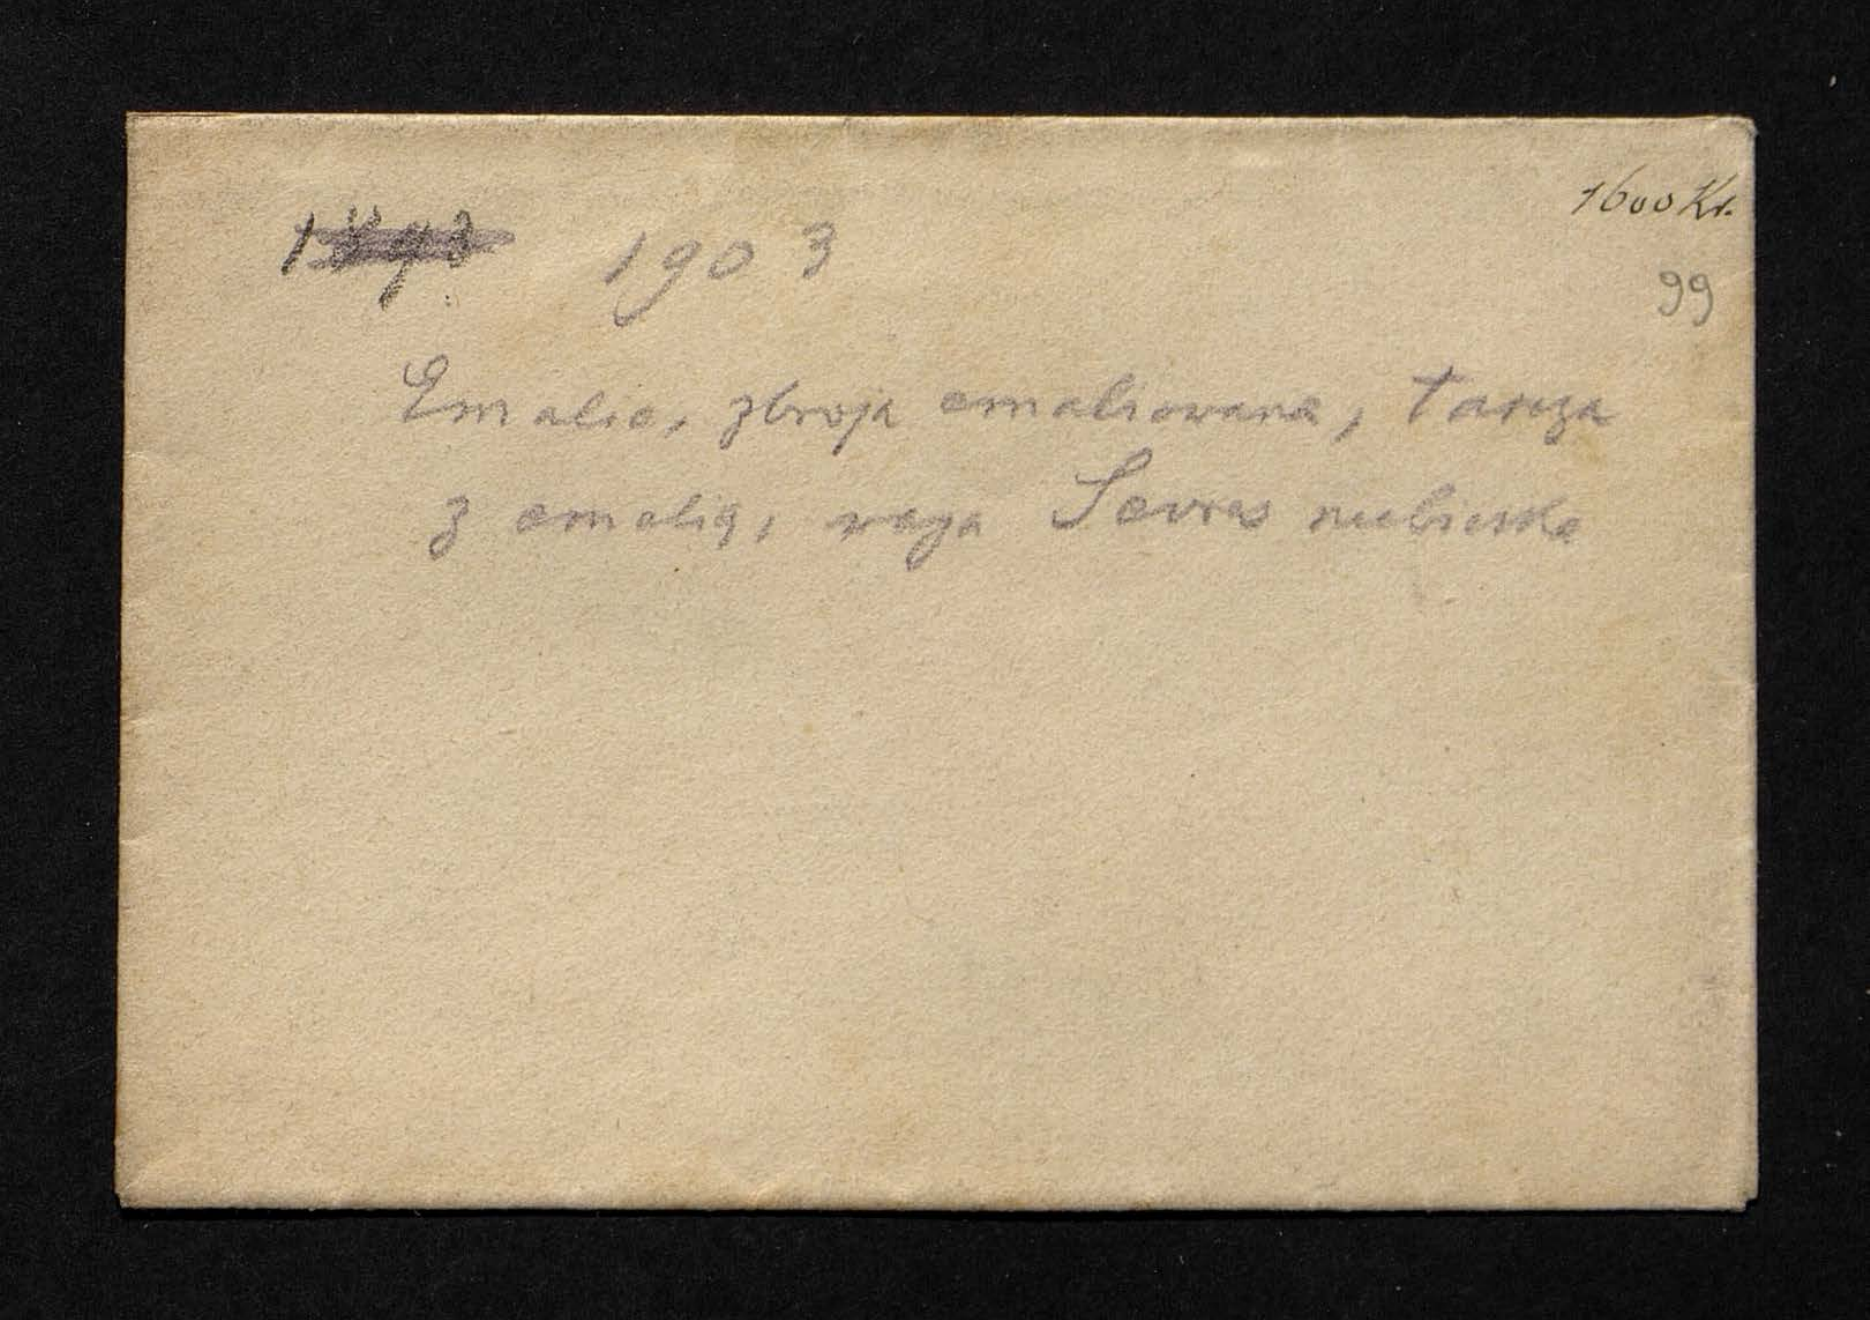 1600 Kr.
1898 1903
99
Emalie, zbroja emaliowana, tarcza
z emalią, waza Sevres niebieska